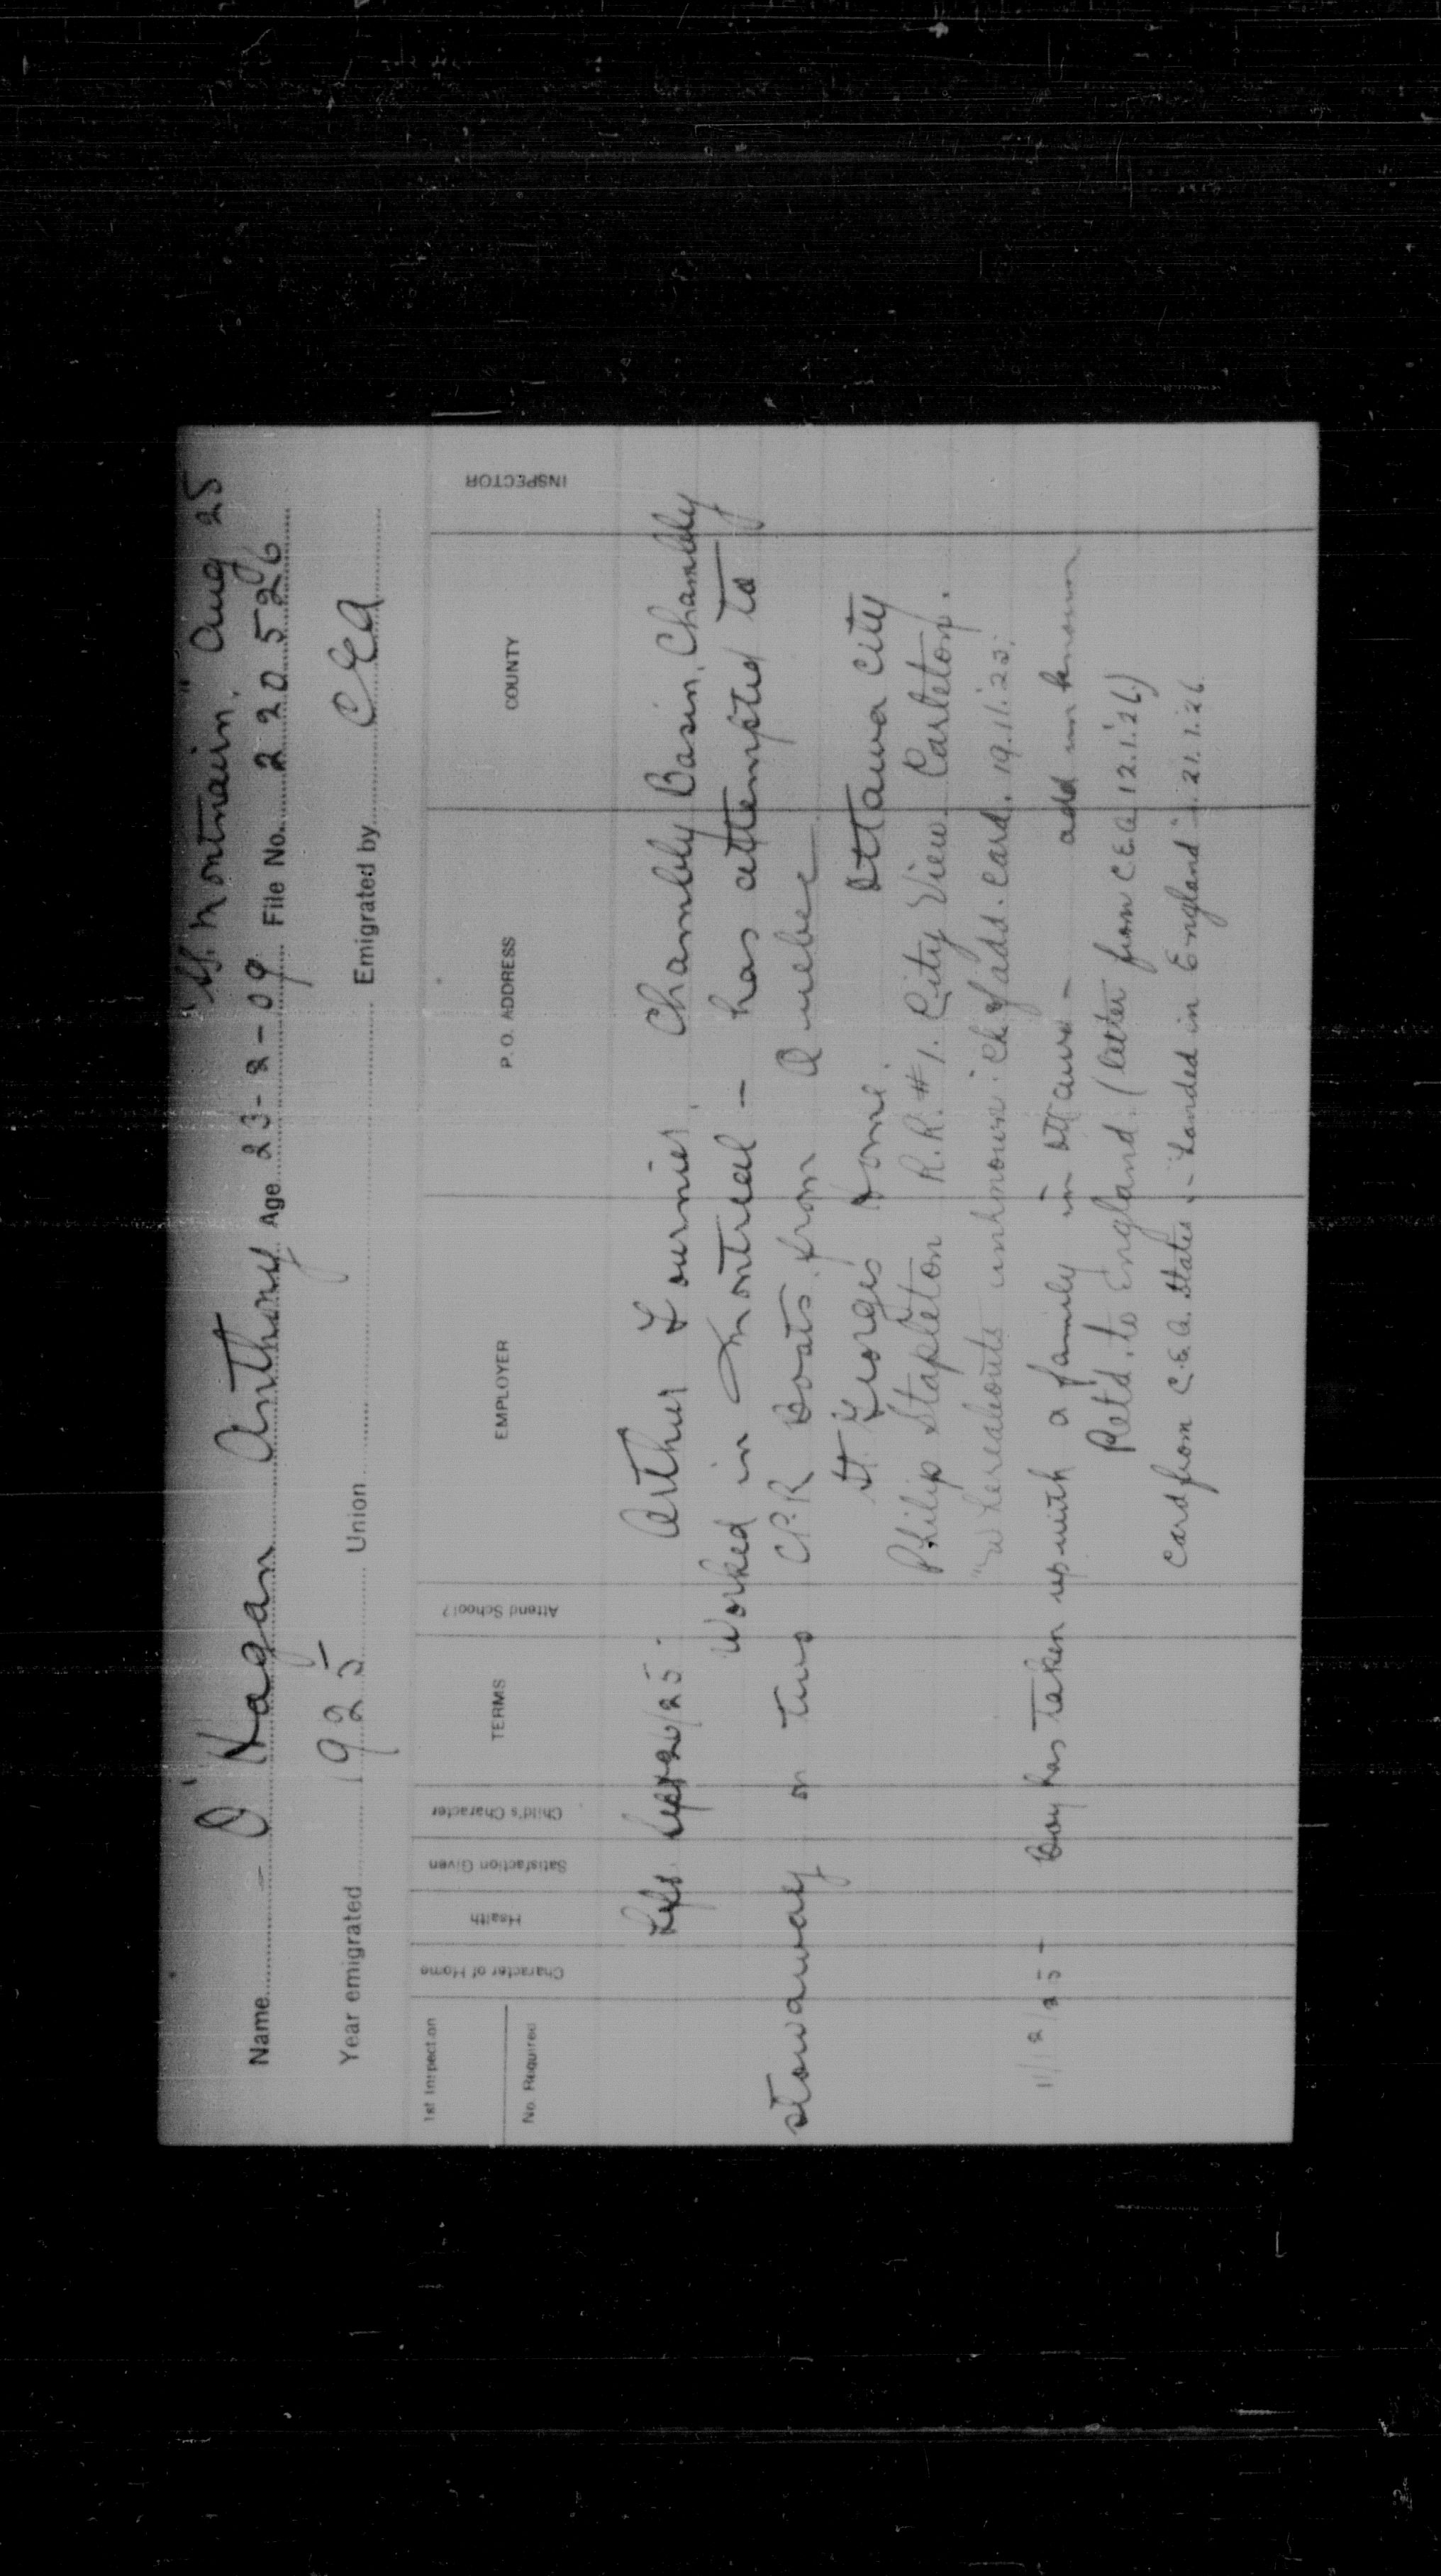 SS. Montnairn" Aug 25
Name O'Hagan Anthony Age 23-2-09 File No. 220526
Year emigrated 1925 Union Emigrated by CEA
1st Inspection
No. Required
Character of Home
Health
Satisfaction Given
Child's Character
TERMS
Attend School?
EMPLOYER
P. O. ADDRESS
COUNTY
INSPECTOR
Left Sept 20/25. Arthur Fournier. Chambly Basin, Chambly
Worked in Montreal - has attempted to
stowaway on two C.P.R Boats from Quebec
St. Georges Home. Ottawa City
Philip Stapleton R.R. #1. City View. Carleton.
"Whereabouts unknown" Ch. of add. card. 19.11.25.
11/12/25 - Boy has taken up with a family in Ottawa - add unknown
Ret'd. to England. (letter from C.E.A. 12.1.26.)
Card from C.E.A. states "Landed in England" 21.1.26.